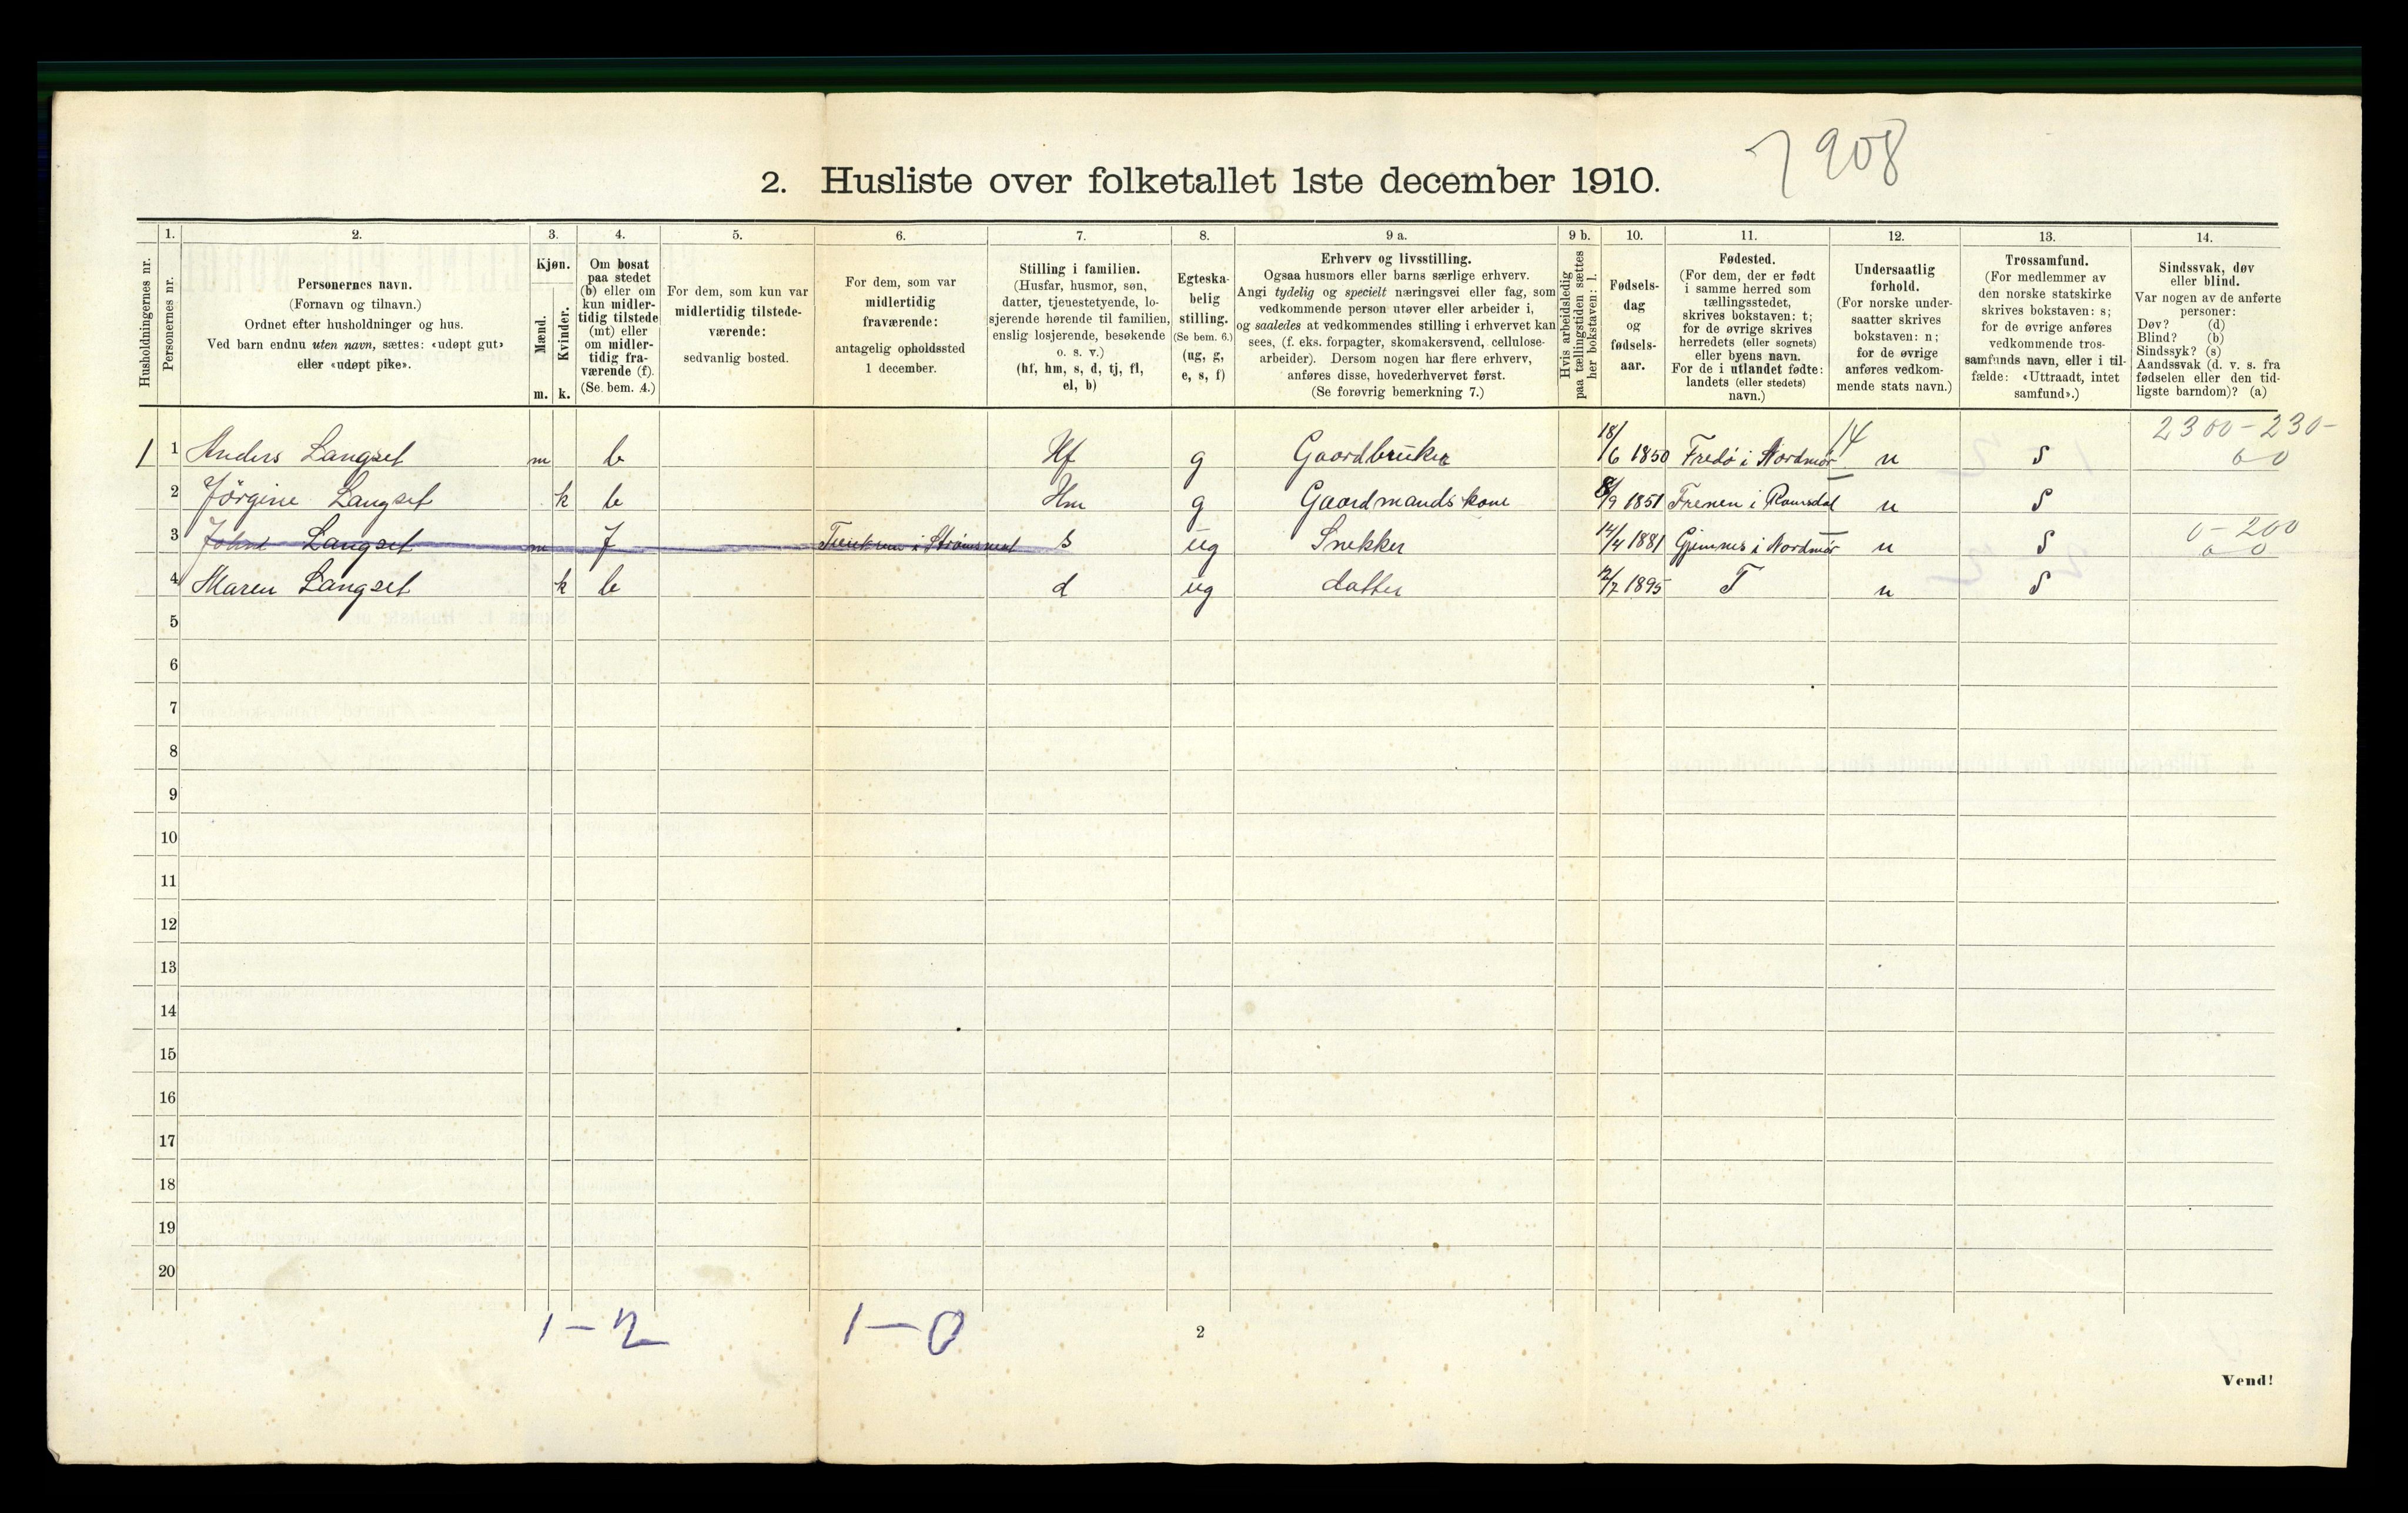 7908
2. Husliste over folketallet 1ste december 1910.
Husholdningernes nr.
1.
Personernes nr.
2.
Personernes navn.
(Fornavn og tilnavn.)
Ordnet efter husholdninger og hus.
Ved barn endnu uten navn, sættes: «udøpt gut»
eller «udøpt pike».
3.
Kjøn.
Mænd.
Kvinder.
m. k.
4.
Om bosat
paa stedet
(b) eller om
kun midler-
tidig tilstede
(mt) eller
om midler-
tidig fra-
værende (f).
(Se bem. 4.)
5.
For dem, som kun var
midlertidig tilstede-
værende:
sedvanlig bosted.
6.
For dem, som var
midlertidig
fraværende:
antagelig opholdssted
1 december.
7.
Stilling i familien.
(Husfar, husmor, søn,
datter, tjenestetyende, lo-
sjerende hørende til familien,
enslig losjerende, besøkende
o. s. v.)
(hf, hm, s, d, tj, fl,
el, b)
8.
Egteska-
belig
stilling.
(Se bem. 6.)
(ug, g,
e, s, f)
9 a.
Erhverv og livsstilling.
Ogsaa husmors eller barns særlige erhverv.
Angi tydelig og specielt næringsvei eller fag, som
vedkommende person utøver eller arbeider i,
og saaledes at vedkommendes stilling i erhvervet kan
sees, (f. eks. forpagter, skomakersvend, cellulose-
arbeider). Dersom nogen har flere erhverv,
anføres disse, hovederhvervet først.
(Se forøvrig bemerkning 7.)
9 b.
Hvis arbeidsledig
paa tællingstiden sættes
her bokstaven: l.
10.
Fødsels-
dag
og
fødsels-
aar.
11.
Fødested.
(For dem, der er født
i samme herred som
tællingsstedet,
skrives bokstaven: t;
for de øvrige skrives
herredets (eller sognets)
eller byens navn.
For de i utlandet fødte:
landets (eller stedets)
navn.)
12.
Undersaatlig
forhold.
(For norske under-
saatter skrives
bokstaven: n;
for de øvrige
anføres vedkom-
mende stats navn.)
13.
Trossamfund.
(For medlemmer av
den norske statskirke
skrives bokstaven: s;
for de øvrige anføres
vedkommende tros-
samfunds navn, eller i til-
fælde: «Uttraadt, intet
samfund».)
14.
Sindssvak, døv
eller blind.
Var nogen av de anførte
personer:
Døv? (d)
Blind? (b)
Sindssyk? (s)
Aandssvak (d. v. s. fra
fødselen eller den tid-
ligste barndom)? (a)
14 2300-230-
1 1 Anders Langset m b Hf g Gaardbruker 18/6 1850 Fredö i Nordmør n S 0 0
2 Jörgine Langset k b Hm g Gaardmandskone 8/9 1851 Frenen i Romsdal n S
0-200
3 Johan Langset m f s ug Snekker 14/4 1881 Gjemnes i Nordmør n S 0 0
4 Maren Langset k b d ug datter 12/7 1895 T n S
5
6
7
8
9
10
11
12
13
14
15
16
17
18
19
20
1-2 1-0
2
Vend!